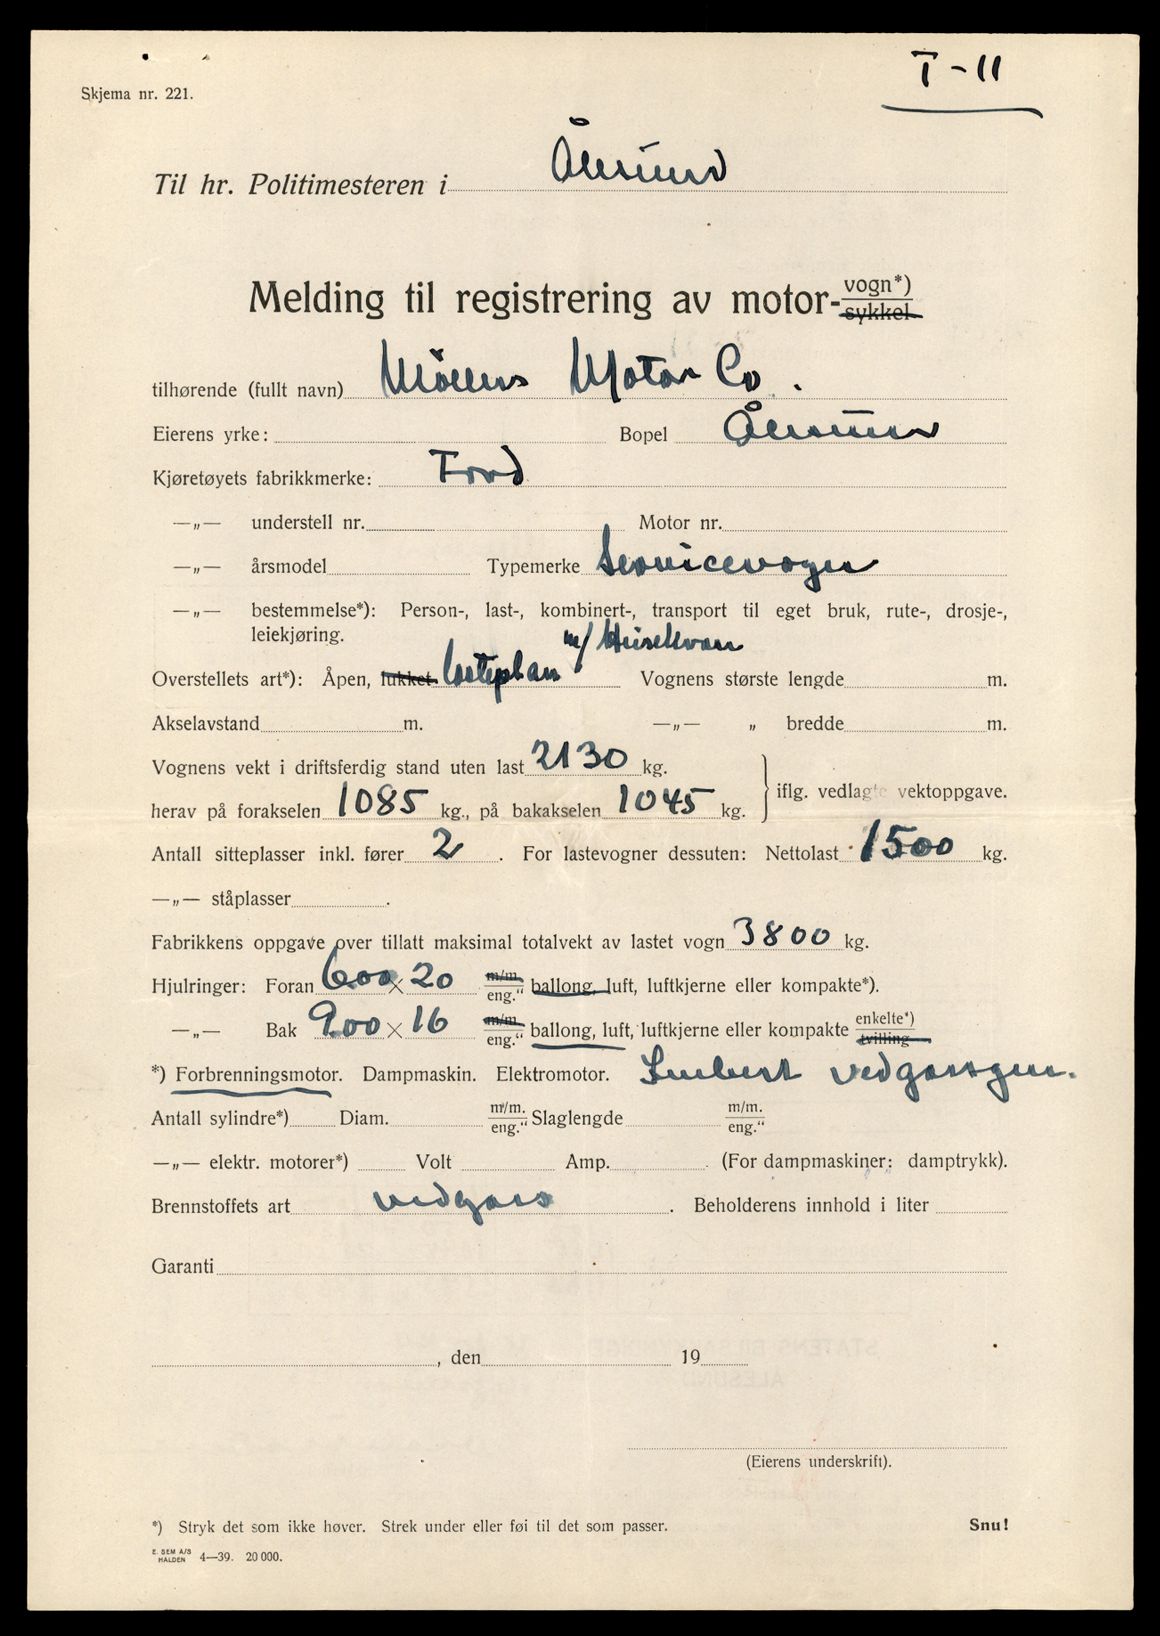 T-11
Skjema nr. 221.
Til hr. Politimesteren i Ålesund
Melding til registrering av motor-vogn*)
sykkel
tilhørende (fullt navn) Möllers Motor Co.
Eierens yrke: Bopel Ålesund
Kjøretøyets fabrikkmerke: Ford
—„— understell nr. Motor nr.
—„— årsmodel Typemerke Servicevogn
—„— bestemmelse*): Person-, last-, kombinert-, transport til eget bruk, rute-, drosje-,
leiekjøring.
m/ Heisekran
Overstellets art*): Åpen, lukket lasteplan Vognens største lengde m.
Akselavstand m. —„— „ bredde m.
Vognens vekt i driftsferdig stand uten last 2130 kg.
iflg. vedlagte vektoppgave.
herav på forakselen 1085 kg., på bakakselen 1045 kg.
Antall sitteplasser inkl. fører 2. For lastevogner dessuten: Nettolast 1500 kg.
—„— ståplasser .
Fabrikkens oppgave over tillatt maksimal totalvekt av lastet vogn 3800 kg.
Hjulringer: Foran 600 × 20 m/m eng.“ ballong, luft, luftkjerne eller kompakte*).
—„— Bak 900 × 16 m/m eng.“ ballong, luft, luftkjerne eller kompakte enkelte*) tvilling
*) Forbrenningsmotor. Dampmaskin. Elektromotor. Imbert vedgassgen.
Antall sylindre*) Diam. m/m. eng.“ Slaglengde m/m. eng.“
—„— elektr. motorer*) Volt Amp. (For dampmaskiner: damptrykk).
Brennstoffets art vedgass. Beholderens innhold i liter
Garanti
, den 19
(Eierens underskrift).
*) Stryk det som ikke høver. Strek under eller føi til det som passer. Snu!
E. SEM A/S
HALDEN 4—39. 20 000.